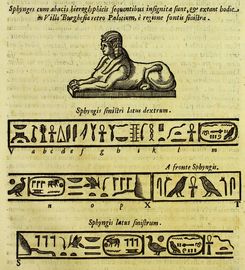 Sphynges cum abacis hieroglyphicis sequentibus insignitæ sunt, et extant hodie
in Villa Burghesia retro Palatium, è regione fontis sinistra.
Sphyngis sinistri latus dextrum.
V a b c d e f g h i k l m
A fronte Sphyngis.
n o p X T
Sphyngis latus sinistrum.
S